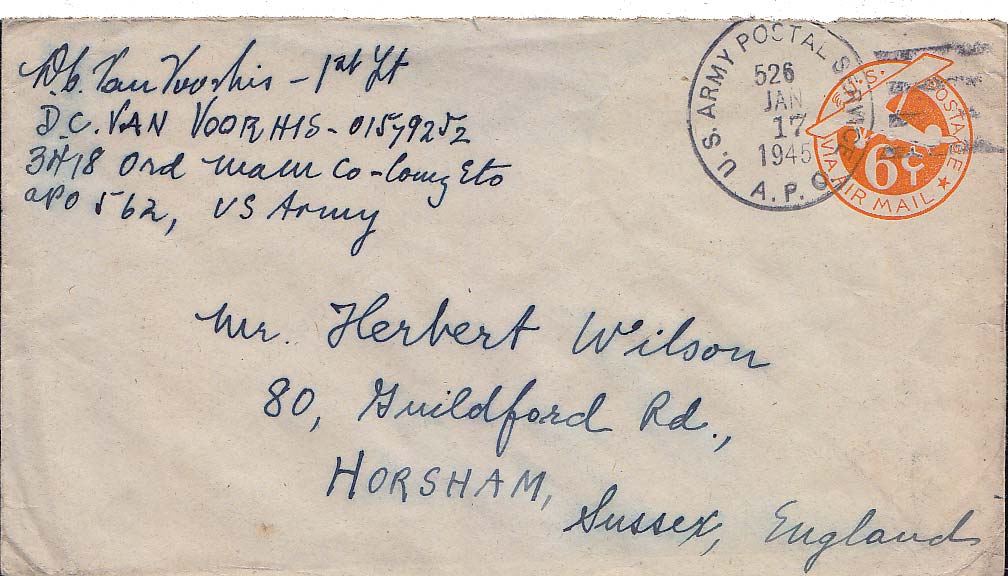 D.C. Van Voorhis - 1st Lt
D.C. VAN VOORHIS - 01579252
3418 Ord Main Co - ComZ Eto
APO 562, US Army
U.S. ARMY POSTAL SERVICE
526
JAN
17
1945
A.P.O.
U.S. POSTAGE
6¢
VIA AIR MAIL
Mr. Herbert Wilson
80, Guildford Rd.,
HORSHAM,
Sussex, England